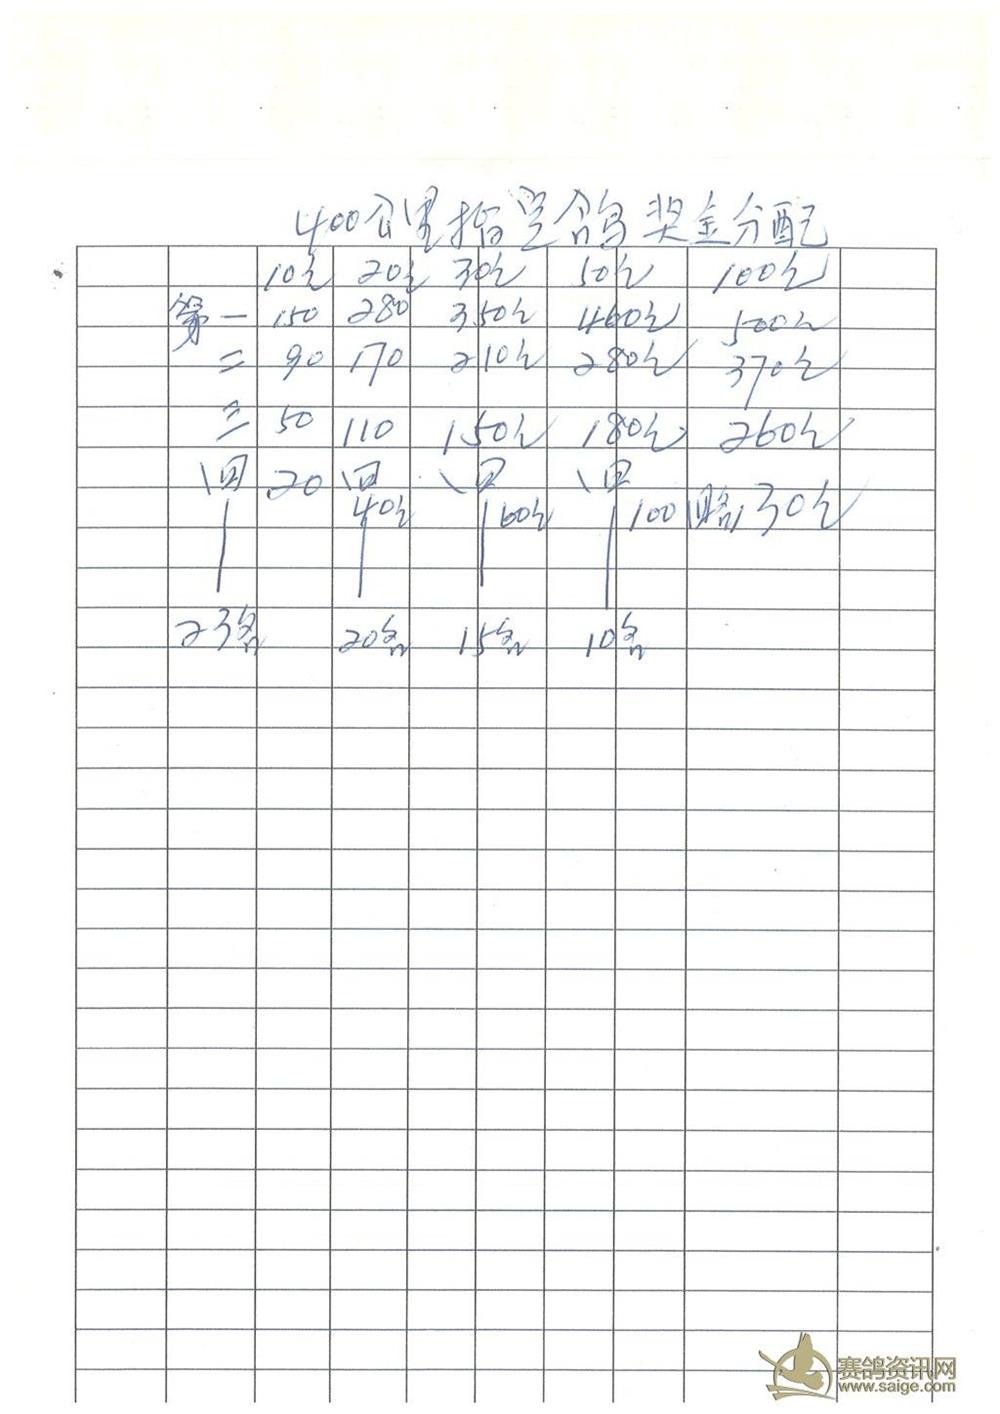 400公里指定鸽奖金分配
10元 20元 30元 50元 100元
第一 150 280 350元 460元 500元
二 90 170 210元 280元 370元
三 50 110 150元 180元 260元
四 20 四 四 四
40元 60元 100 30元
23名 20名 15名 10名
赛鸽资讯网
www.saige.com